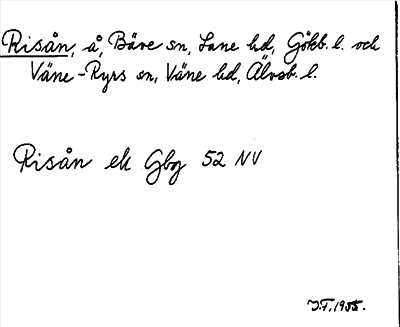 Risån, å, Bäve sn, Lane hd, Götb. l. och
Väne-Ryrs sn, Väne hd, Älvsb. l.
Risån ek Gbg 52 NV
J.F. 1955.